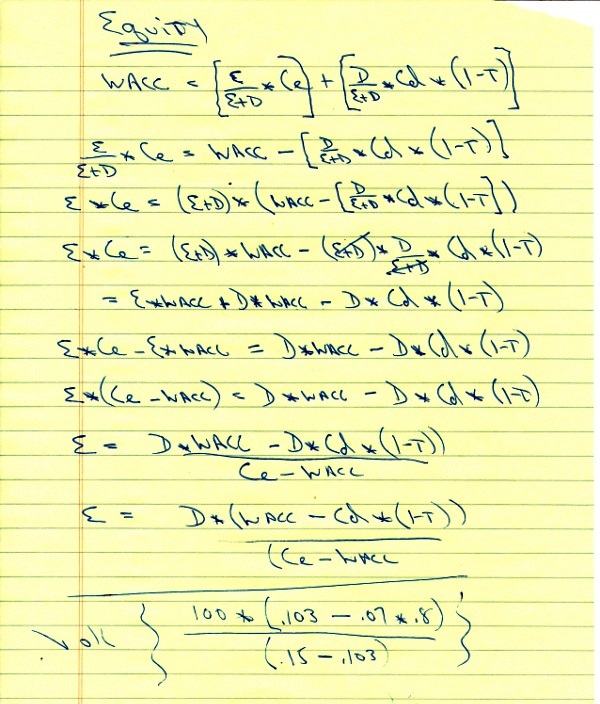 Equity
WACC = [E/E+D * Ce] + [D/E+D * Cd * (1-T)]
E/E+D * Ce = WACC - [D/E+D * Cd * (1-T)]
E * Ce = (E+D) * (WACC - [D/E+D * Cd * (1-T])
E * Ce = (E+D) * WACC - (E+D) * D/E+D * Cd * (1-T)
= E * WACC + D * WACC - D * Cd * (1-T)
E * Ce - E * WACC = D * WACC - D * Cd * (1-T)
E * (Ce - WACC) = D * WACC - D * Cd * (1-T)
E = D * WACC - D * Cd * (1-T)) / Ce - WACC
E = D * (WACC - Cd * (1-T)) / (Ce - WACC
} 100 * (.103 - .07 * .8) / (.15 - .103) }